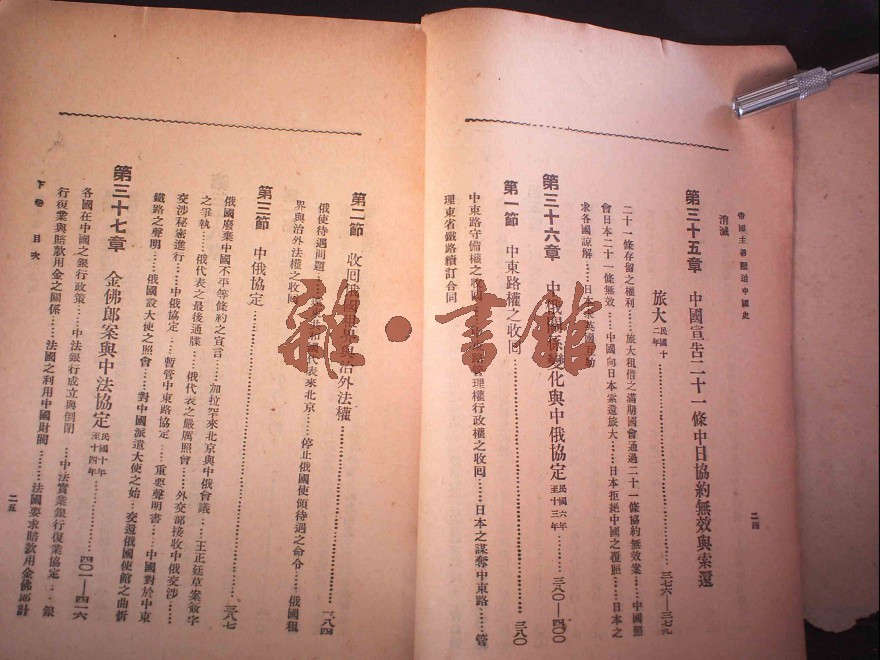 帝國主義壓迫中國史
二四
消滅
第三十五章 中國宣告二十一條中日協約無效與索還
旅大 民國十二年 三七六—三七九
二十一條存留之權利……旅大租借之滿期國會通過二十一條協約無效案……中國照
會日本二十一條無效……中國向日本索還旅大……日本拒絕中國之覆照……日本之
求各國諒解……日本
第三十六章 中俄關係變化與中俄協定 民國六年至十三年 三八〇—四〇〇
第一節 中東路權之收回 三八〇
中東路守備權之收回……管理權行政權之收回……日本之謀奪中東路……管
理東省鐵路續訂合同
第二節 收回俄國租界與治外法權 三八四
俄使待遇問題……和國代表來北京……停止俄國使領待遇之命令……俄國租
界與治外法權之收回
第三節 中俄協定 三八七
俄國廢棄中國不平等條約之宣言……加拉罕來北京與中俄會議……王正廷草案簽字
之爭執……俄代表之最後通牒……俄代表之嚴厲照會……外交部接收中俄交涉……
交涉秘密進行……中俄協定……暫管中東路協定……重要聲明書……中國對於中東
鐵路之聲明……俄國設大使之照會……對中國派遣大使之始……交還俄國使館之曲折
第三十七章 金佛郎案與中法協定 民國十年至十四年 四〇一—四一六
各國在中國之銀行政策……中法銀行成立與倒閉……中法實業銀行復業協定……銀
行復業與賠款用金之關係……法國之利用中國財閥……法國要求賠款用金佛郎計
下卷 目次
二五
雜·書館